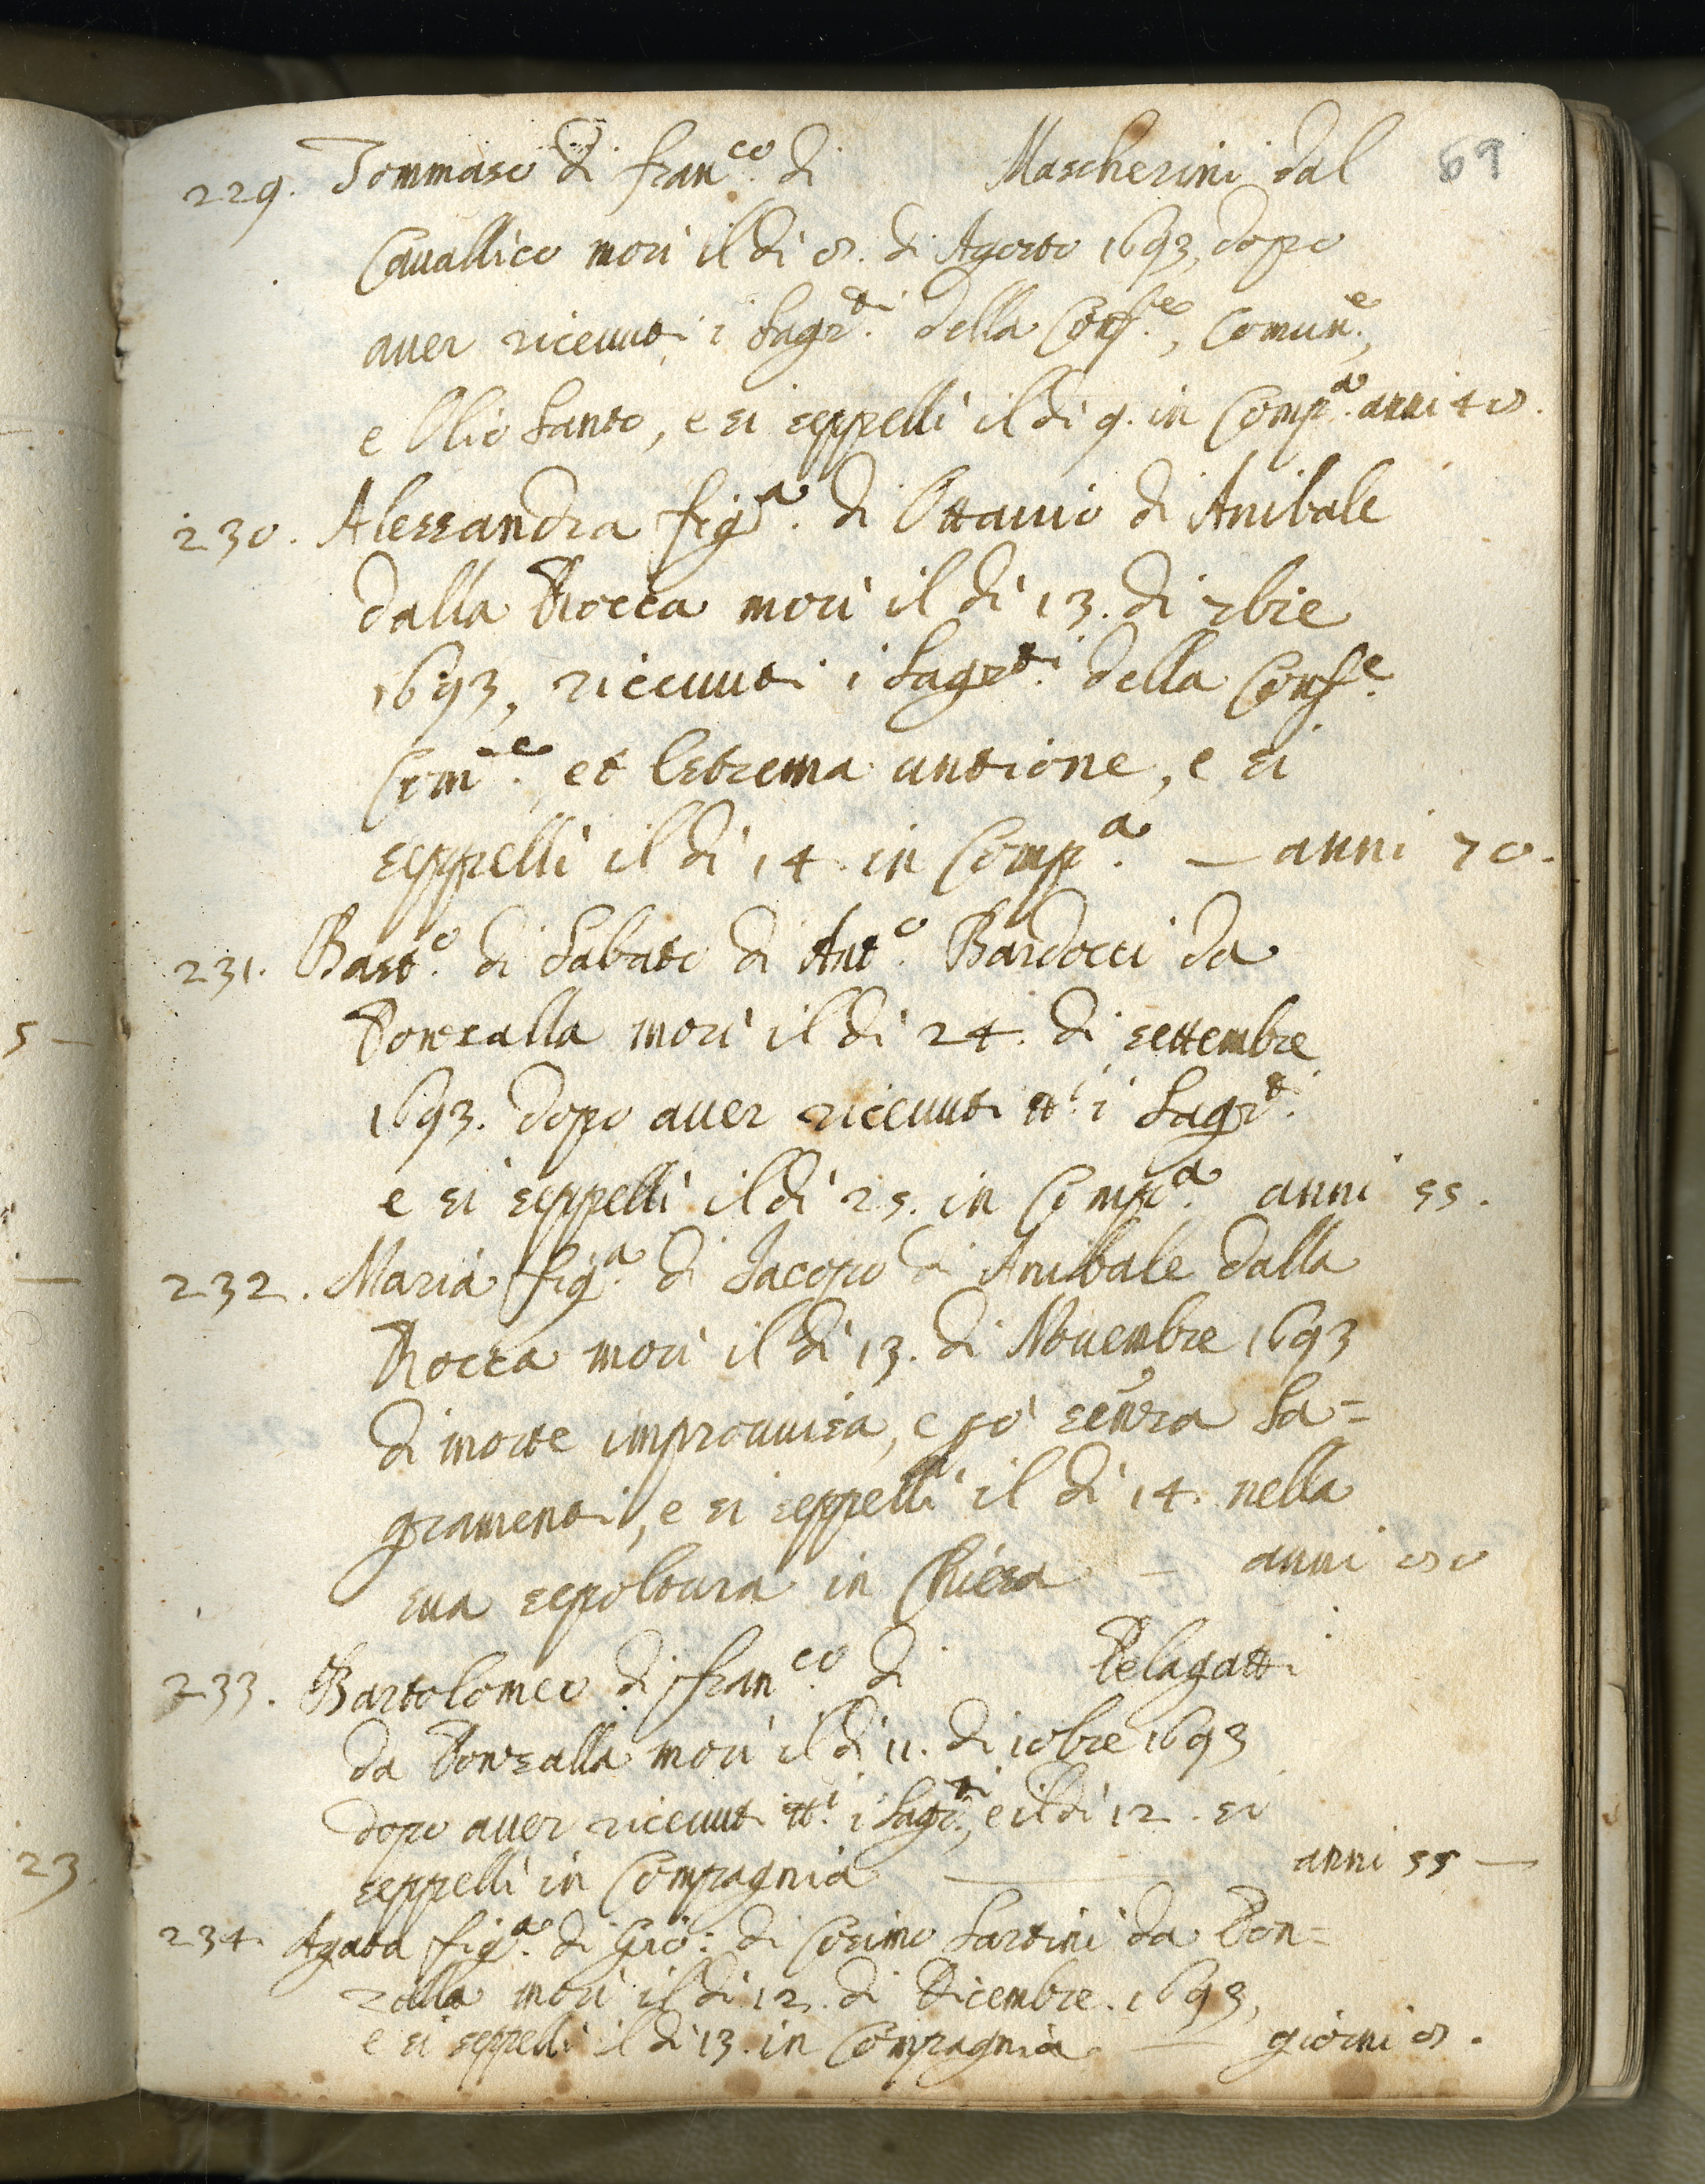 69
229. Tommaso di Fran.co di Mascherini dal
Cavallico morì il dì 8. di Agosto 1693, dopo
aver ricevuti i Sagr.ti della Conf.e, Comun.e,
e Olio Santo, e si seppellì il dì 9. in Comp.a anni 40.
230. Alessandra fig.a di Ottavio di Anibale
dalla Rocca morì il dì 13. di 7bre
1693, ricevuti i Sagr.ti della Conf.e
Com.e, et Estrema untione, e si
seppellì il dì 14. in Comp.a — anni 70.
231. Bast.o di Sabato di Ant.o Bardocci da
Ponsalla morì il dì 24. di settembre
1693. dopo aver ricevuti tt.i i Sagr.ti
e si seppellì il dì 25. in Comp.a anni 55.
232. Maria fig.a di Jacopo di Anibale dalla
Rocca morì il dì 13. di Novembre 1693
di morte improvvisa, e po' senza Sa=
gramenti, e si seppellì il dì 14. nella
sua sepoltura in Chiesa — anni 80
233. Bartolomeo di Fran.co di Pelagatti
da Ponsalla morì il dì 11. di 10bre 1693
dopo aver ricevuti tt.i i Sagr.ti, e il dì 12. si
seppellì in Compagnia — anni 55 —
234. Agata fig.a di Gio: di Cosimo Sartini da Pon=
zalla morì il dì 12. di Dicembre. 1693,
e si seppellì il dì 13. in Compagnia — giorni 8.
5 —
—
23